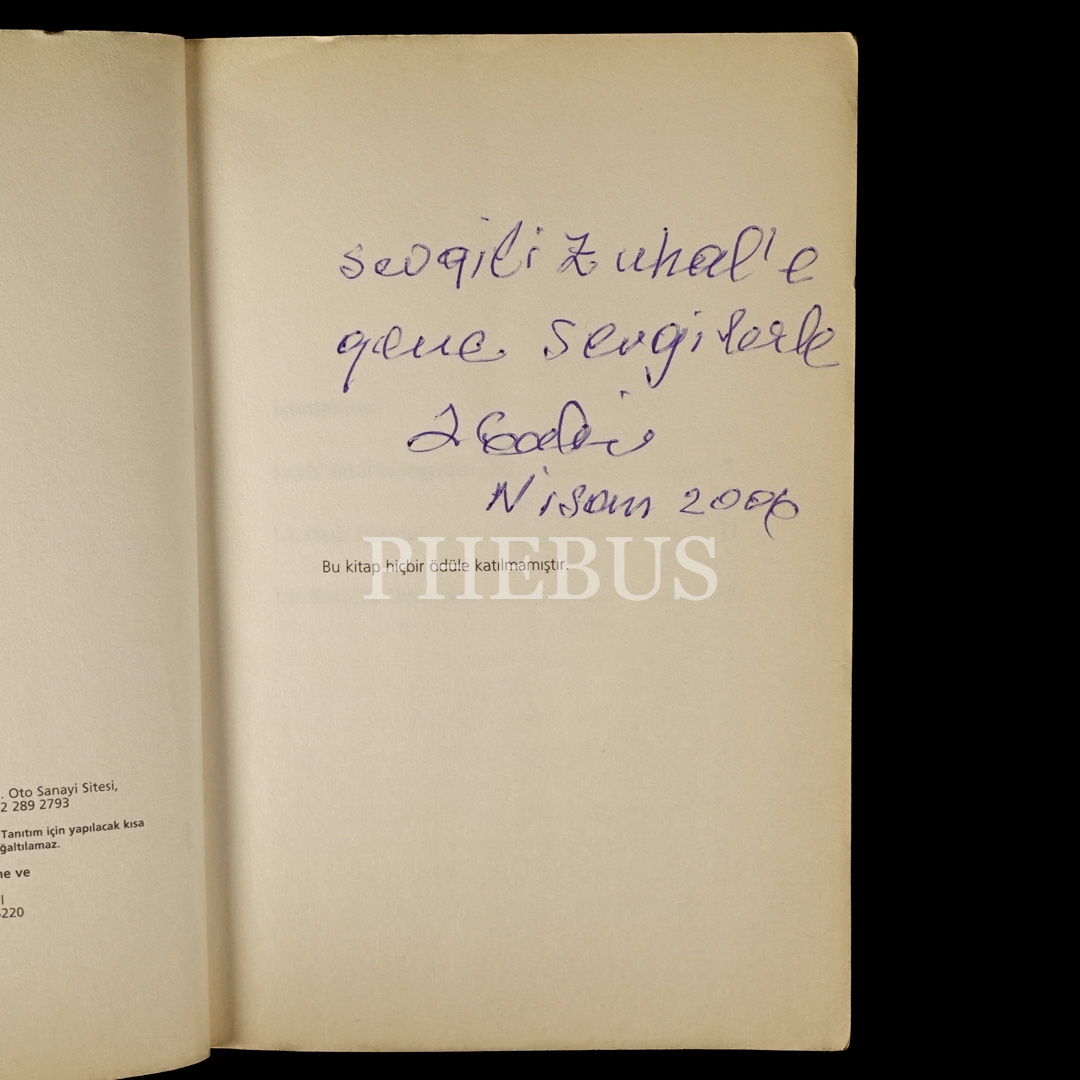 sevgili Zuhal'e
gene sevgilerle
Nisan 2006
PHEBUS
Bu kitap hiçbir ödüle katılmamıştır.
. Oto Sanayi Sitesi,
2 289 2793
Tanıtım için yapılacak kısa
ğaltılamaz.
ne ve
220